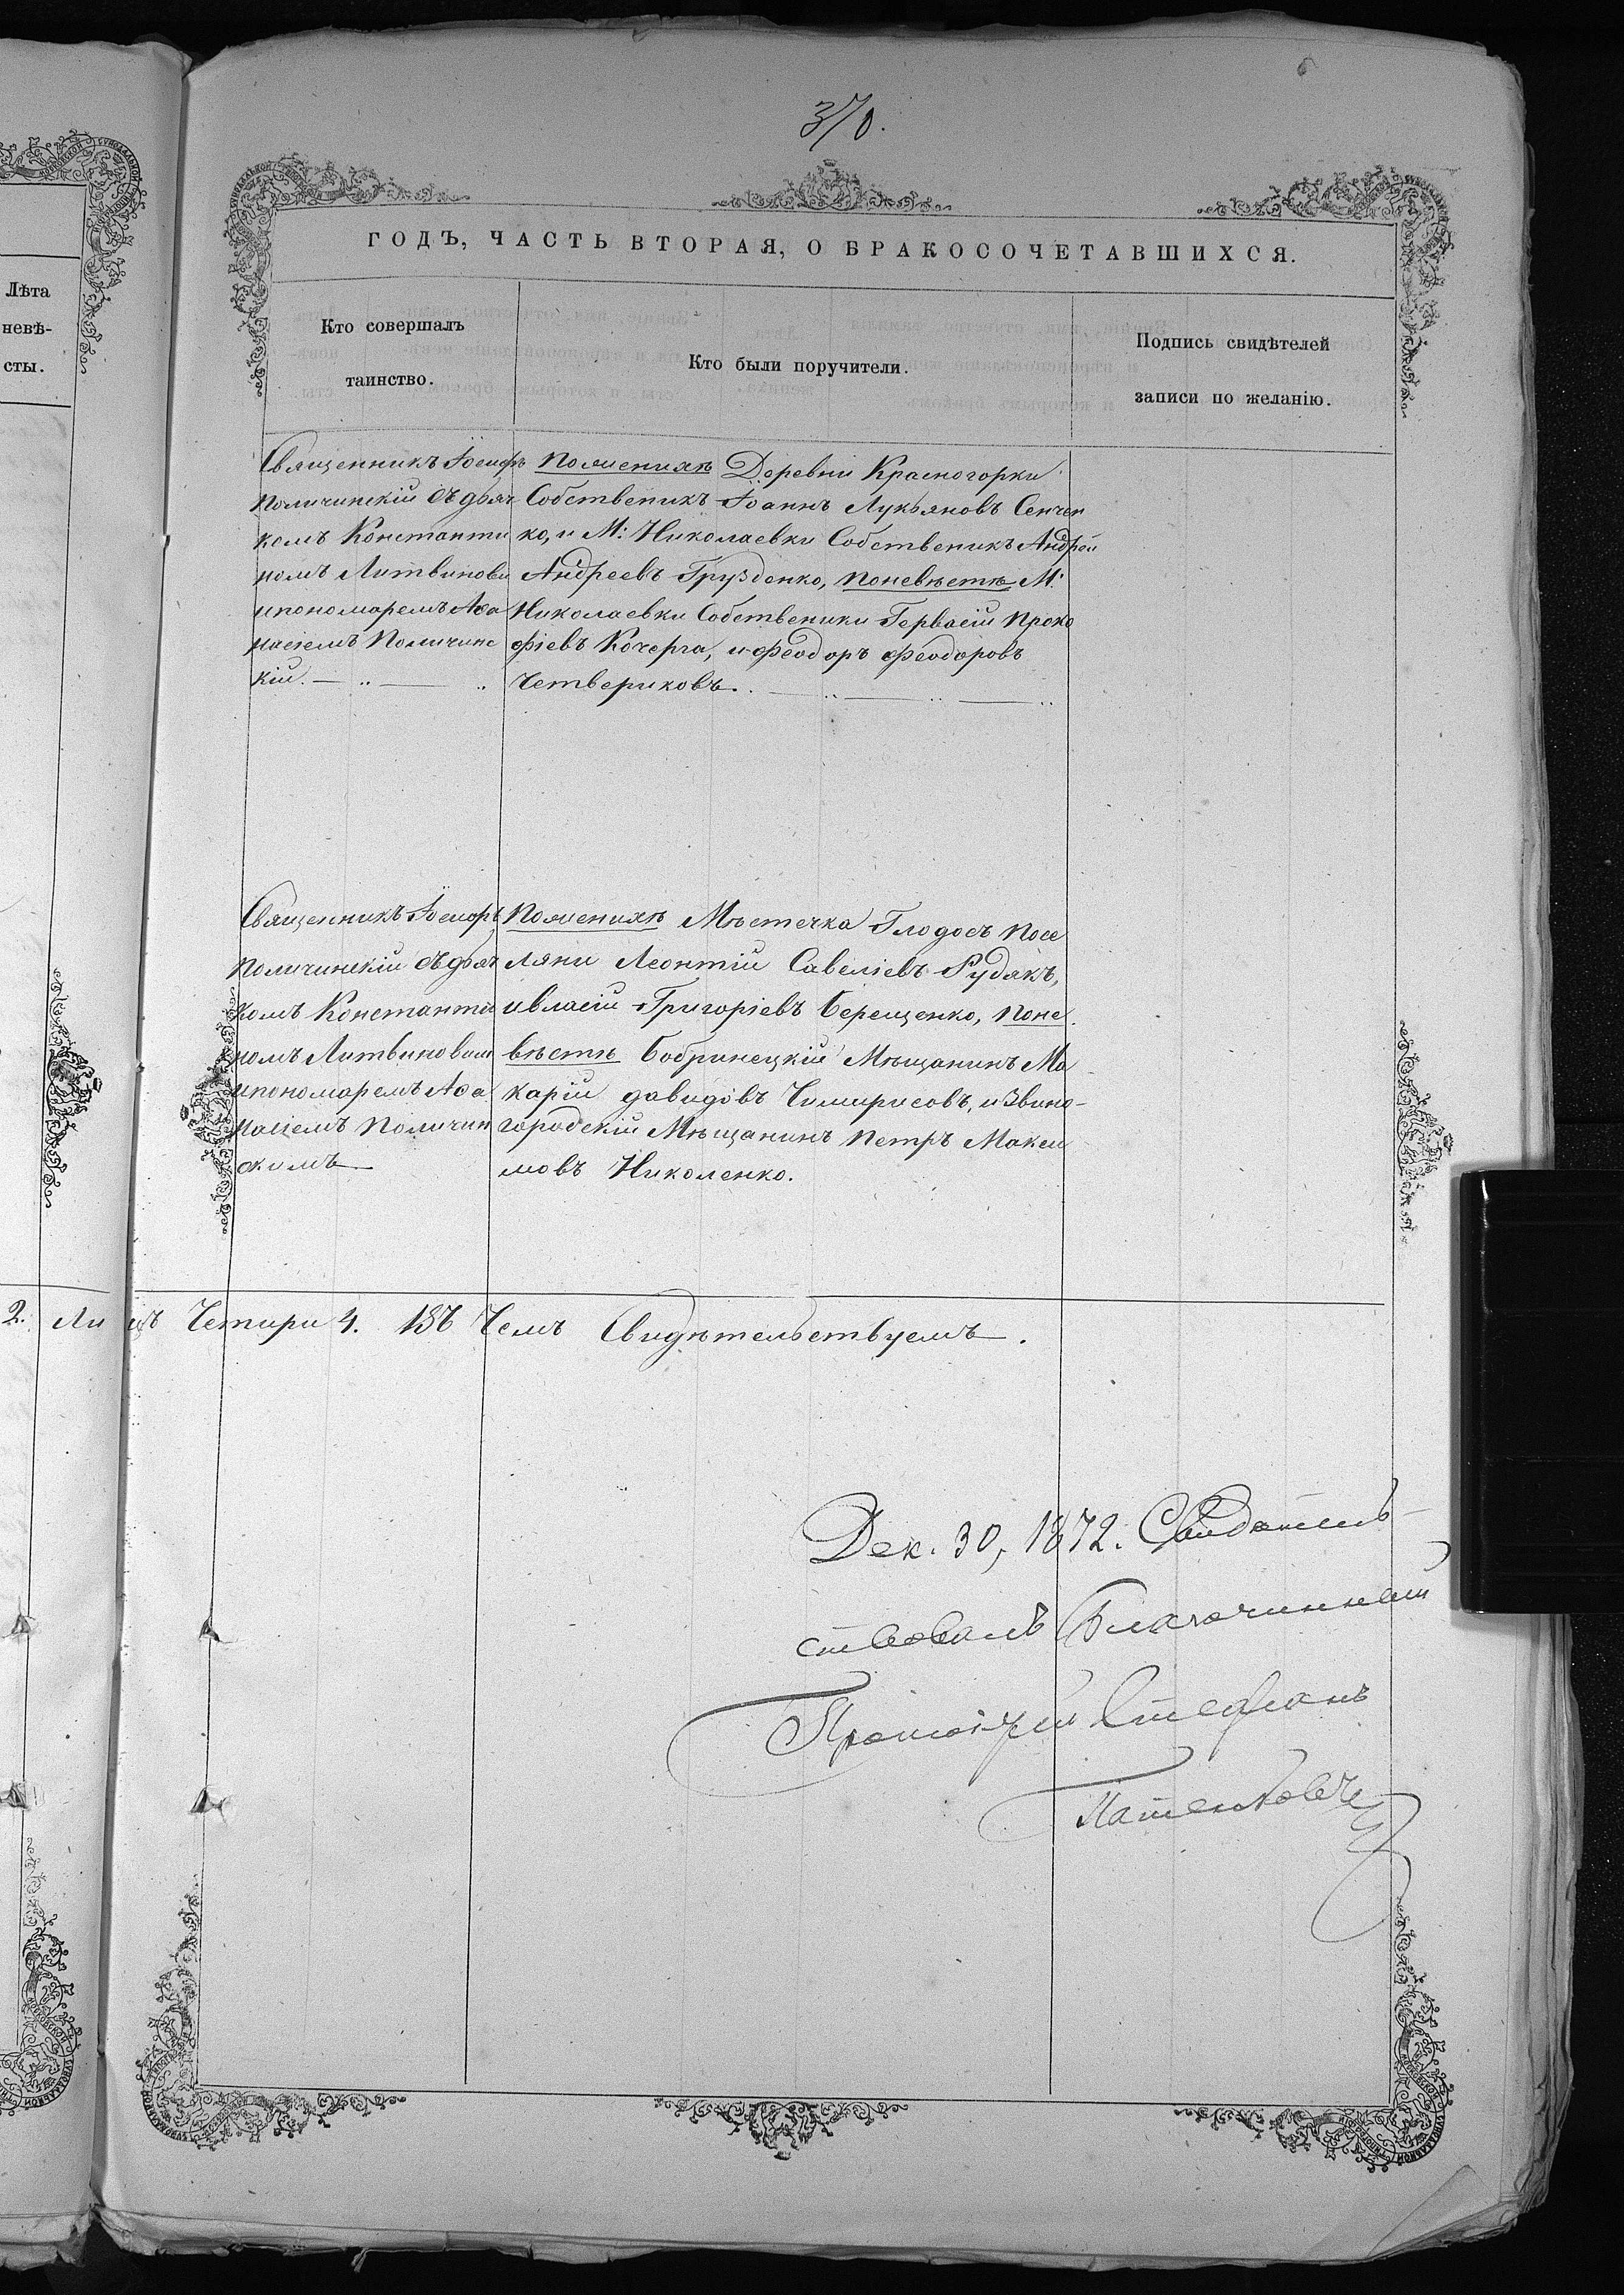 370.
ГОДЪ, ЧАСТЬ ВТОРАЯ, О БРАКОСОЧЕТАВШИХСЯ.
Лѣта
невѣ-
сты.
Кто совершалъ
таинство.
Кто были поручители.
Подпись свидѣтелей
записи по желанію.
Священникъ Іосифъ
Поличинскій съ дьяч
комъ Константи
номъ Литвинови
и пономаремъ Аѳа
насіемъ Поличинс
кій.
По женихѣ Деревни Красногорки
Собственикъ Іоаннъ Лукьяновъ Сенчен
ко, и М: Николаевки Собственикъ Андрей
Андреевъ Грузденко, по невѣстѣ М:
Николаевки Собственики Гервасій Проко
фіевъ Кочерга, и Феодоръ Феодоровъ
Четвериковъ.
Священникъ Іосифъ
Поличинскій съ дьяч
комъ Константи
номъ Литвиновым
и пономаремъ Аѳа
насіемъ Поличин
скимъ
По женихѣ Мѣстечка Глодосъ Посе
ляни Леонтій Савеліевъ Рудякъ,
и Власій Григоріевъ Берещенко, по не
вѣстѣ Бобринецкій Мѣщанинъ Ма
карій Давидовъ Чимирисовъ, и Звино-
городскій Мѣщанинъ Петръ Макси
мовъ Николенко.
2. Ли цъ Четири 4. Въ Чемъ Свидѣтельствуемъ.
Дек. 30, 1872. Свидѣтель-
ствовалъ Благочинный
Протоіерей Стефанъ